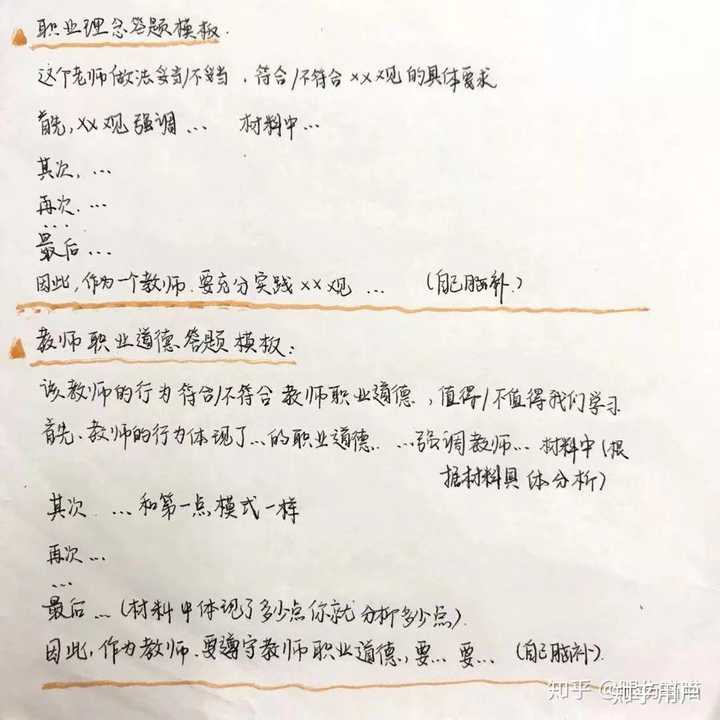 职业理念答题模板.
这个老师做法妥当/不妥当，符合/不符合××观的具体要求
首先，××观强调... 材料中...
其次，...
再次，...
...
最后...
因此，作为一个教师，要充分实践××观 ... (自己脑补.)
教师职业道德答题模板：
该教师的行为符合/不符合教师职业道德，值得/不值得我们学习
首先、教师的行为体现了...的职业道德. ...强调教师... 材料中(根
据材料具体分析)
其次 ...和第一点模式一样
再次...
...
最后...(材料中体现了多少点你就分析多少点).
因此，作为教师.要遵守教师职业道德，要... 要... (自己脑补).
知乎用户